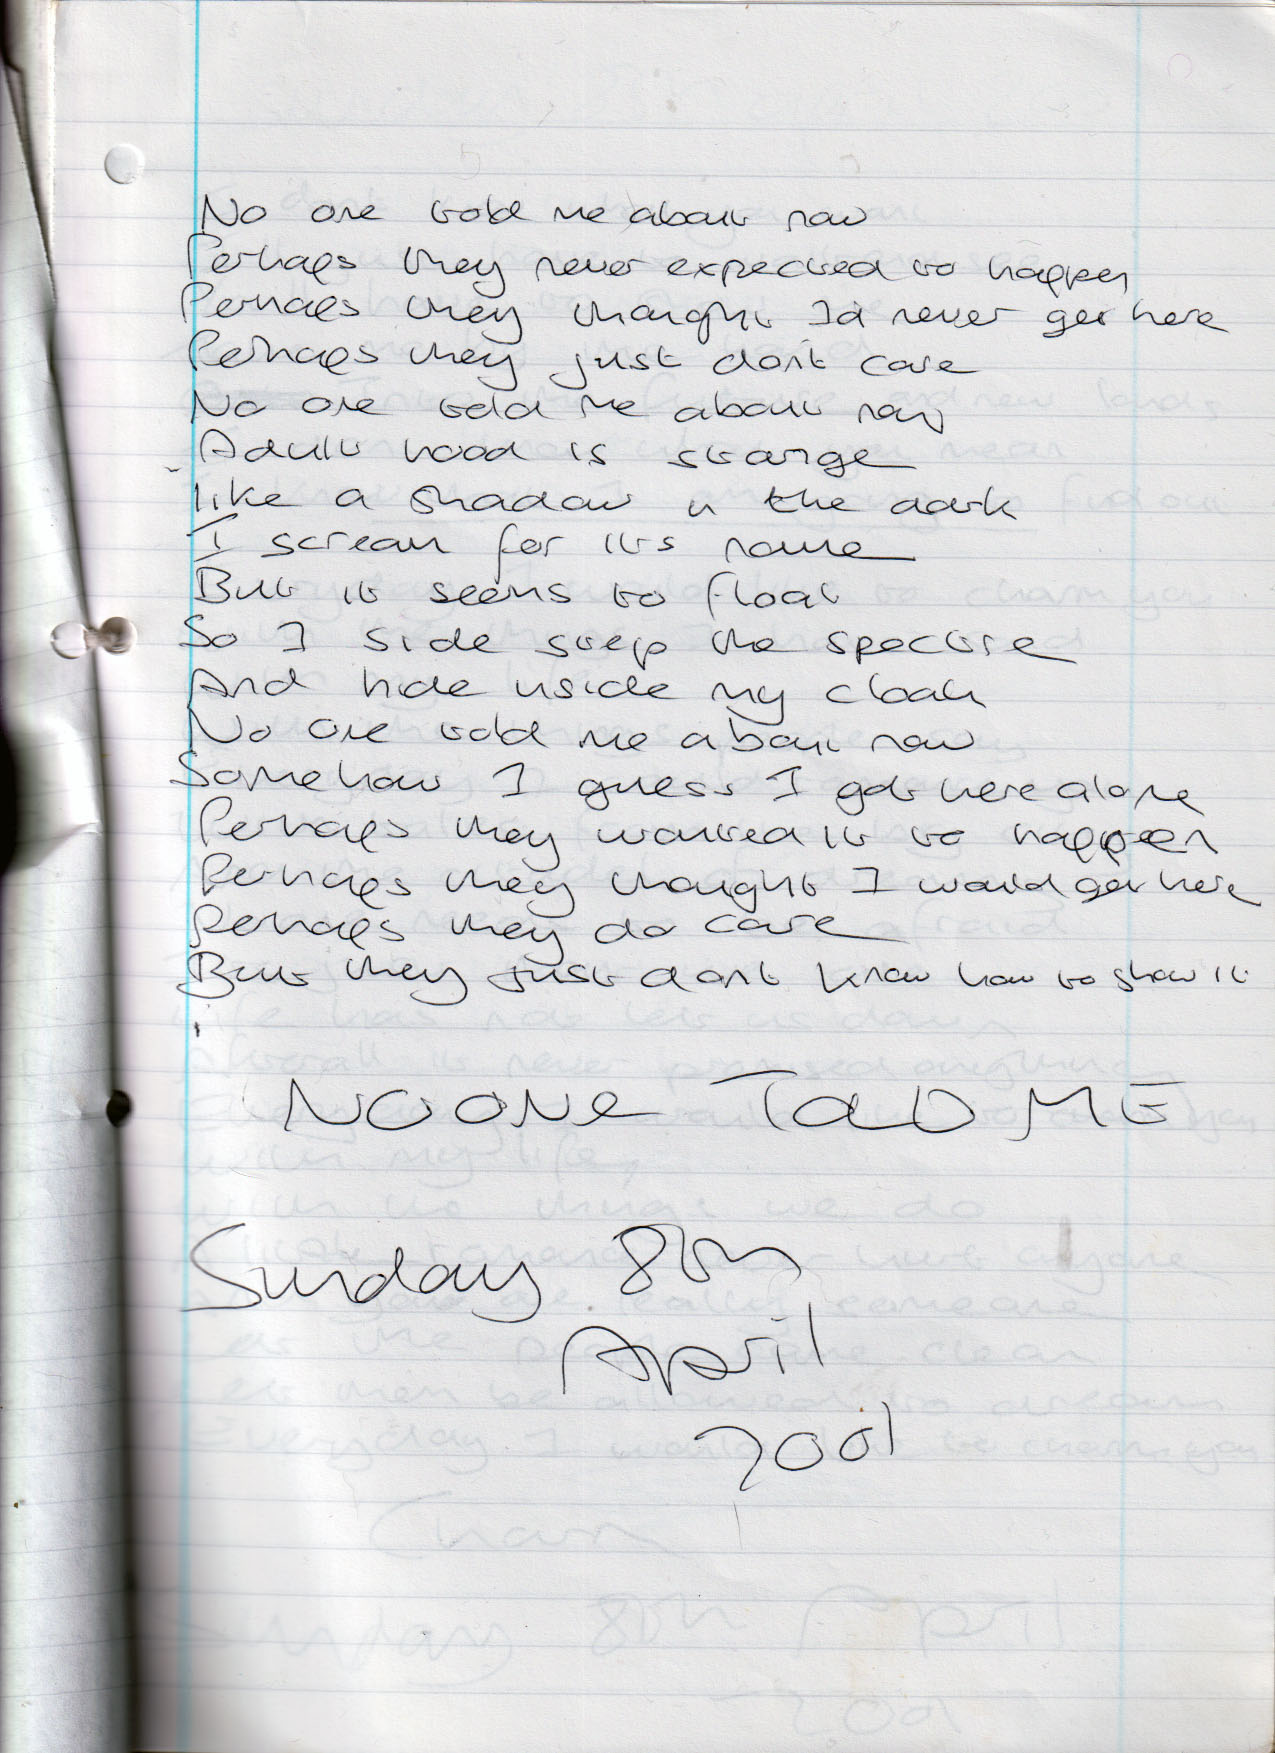 No one told me about now
Perhaps they never expected to happen
Perhaps they thought I'd never get here
Perhaps they just don't care
No one told me about now
Adult hood is strange
like a shadow in the dark
I scream for its name
But it seems to float
So I side step the spectre
And hide inside my cloak
No one told me about now
Somehow I guess I got here alone
Perhaps they wanted it to happen
Perhaps they thought I would get here
Perhaps they do care
But they just dont know how to show it
NO ONE TOLD ME
Sunday 8th
April
2001